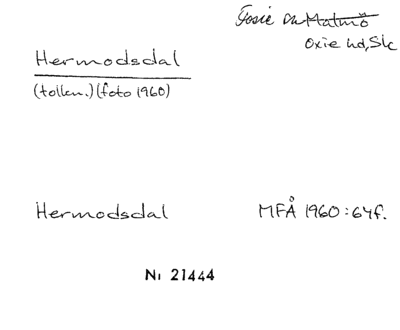 Fosie sn Malmö
Oxie hd, Sk
Hermodsdal
(tolkn.) (foto 1960)
Hermodsdal MFÅ 1960:64f.
Ni 21444